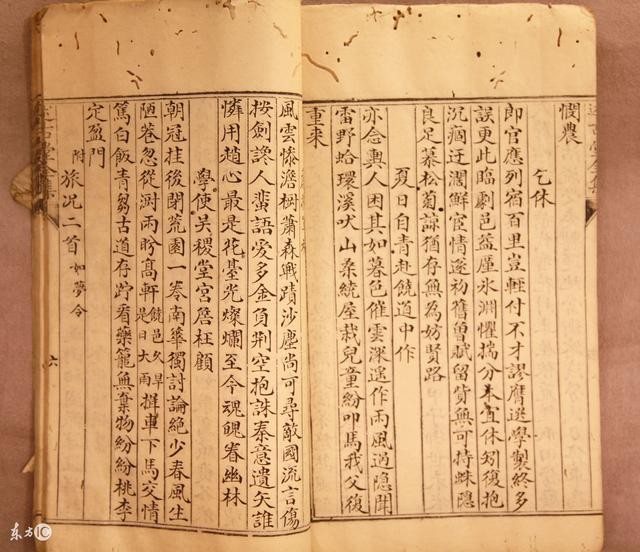 憫農
乞休
即官應列宿百里豈輕付不才謬膺選學製終多
誤更此臨劇邑益厪氷淵懼揣分本宜休矧復抱
沉痼迂濶鮮宦情遂初舊曾賦留貲無可持蛛隱
良足慕松菊諒猶存無為妨賢路
夏日自青赴饒道中作
亦念輿人困其如暮色催雲深遥作雨風過隱聞
雷野蛤環溪吠山桑繞屋栽兒童紛叩馬我父復
重来
風雲慘澹樹蕭森戰蹟沙塵尚可尋敵國流言傷
按劍讒人蜚語愛多金負荆空抱誅秦意遺矢誰
憐用趙心最是花臺光燦爛至今魂魄眷幽林
學使吴稷堂宫詹枉顧
朝冠挂後閉荒園一卷南華獨討論絶少春風生
陋巷忽從澍雨盼髙軒饒邑久旱是日大雨攆車下馬交情
篤白飯青芻古道存貯看藥籠無棄物紛紛桃李
定盈門
附旅况二首如夢令
六
东方IC